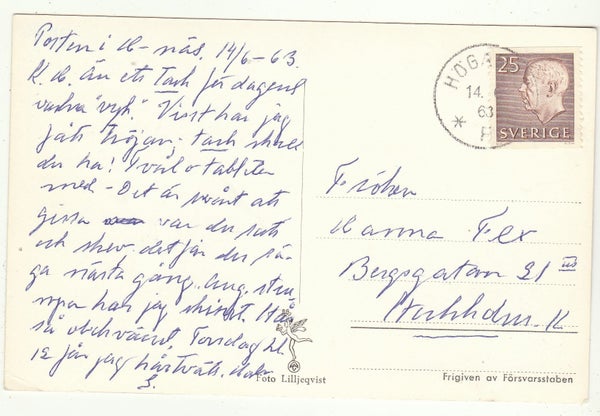 Posten i H-näs, 14/6-63.
K. H. Än ett Tack för dagens
vackra "vyk". Visst har jag
fått tröjan; tack skall
du ha! Tvål o tabletter
med - Det är svårt att
gissa var du satt
och skrev. det får du sä-
ga nästa gång. Ang. strum-
porna har jag
så obekvämt. Torsdag kl.
12 får jag hårtvätt.
S.
HÖGA
14.
63
25
SVERIGE
Fröken
Hanna Flex
Bergsgatan 21 III
Stockholm. K
Foto Lilljeqvist
Frigiven av Försvarsstaben